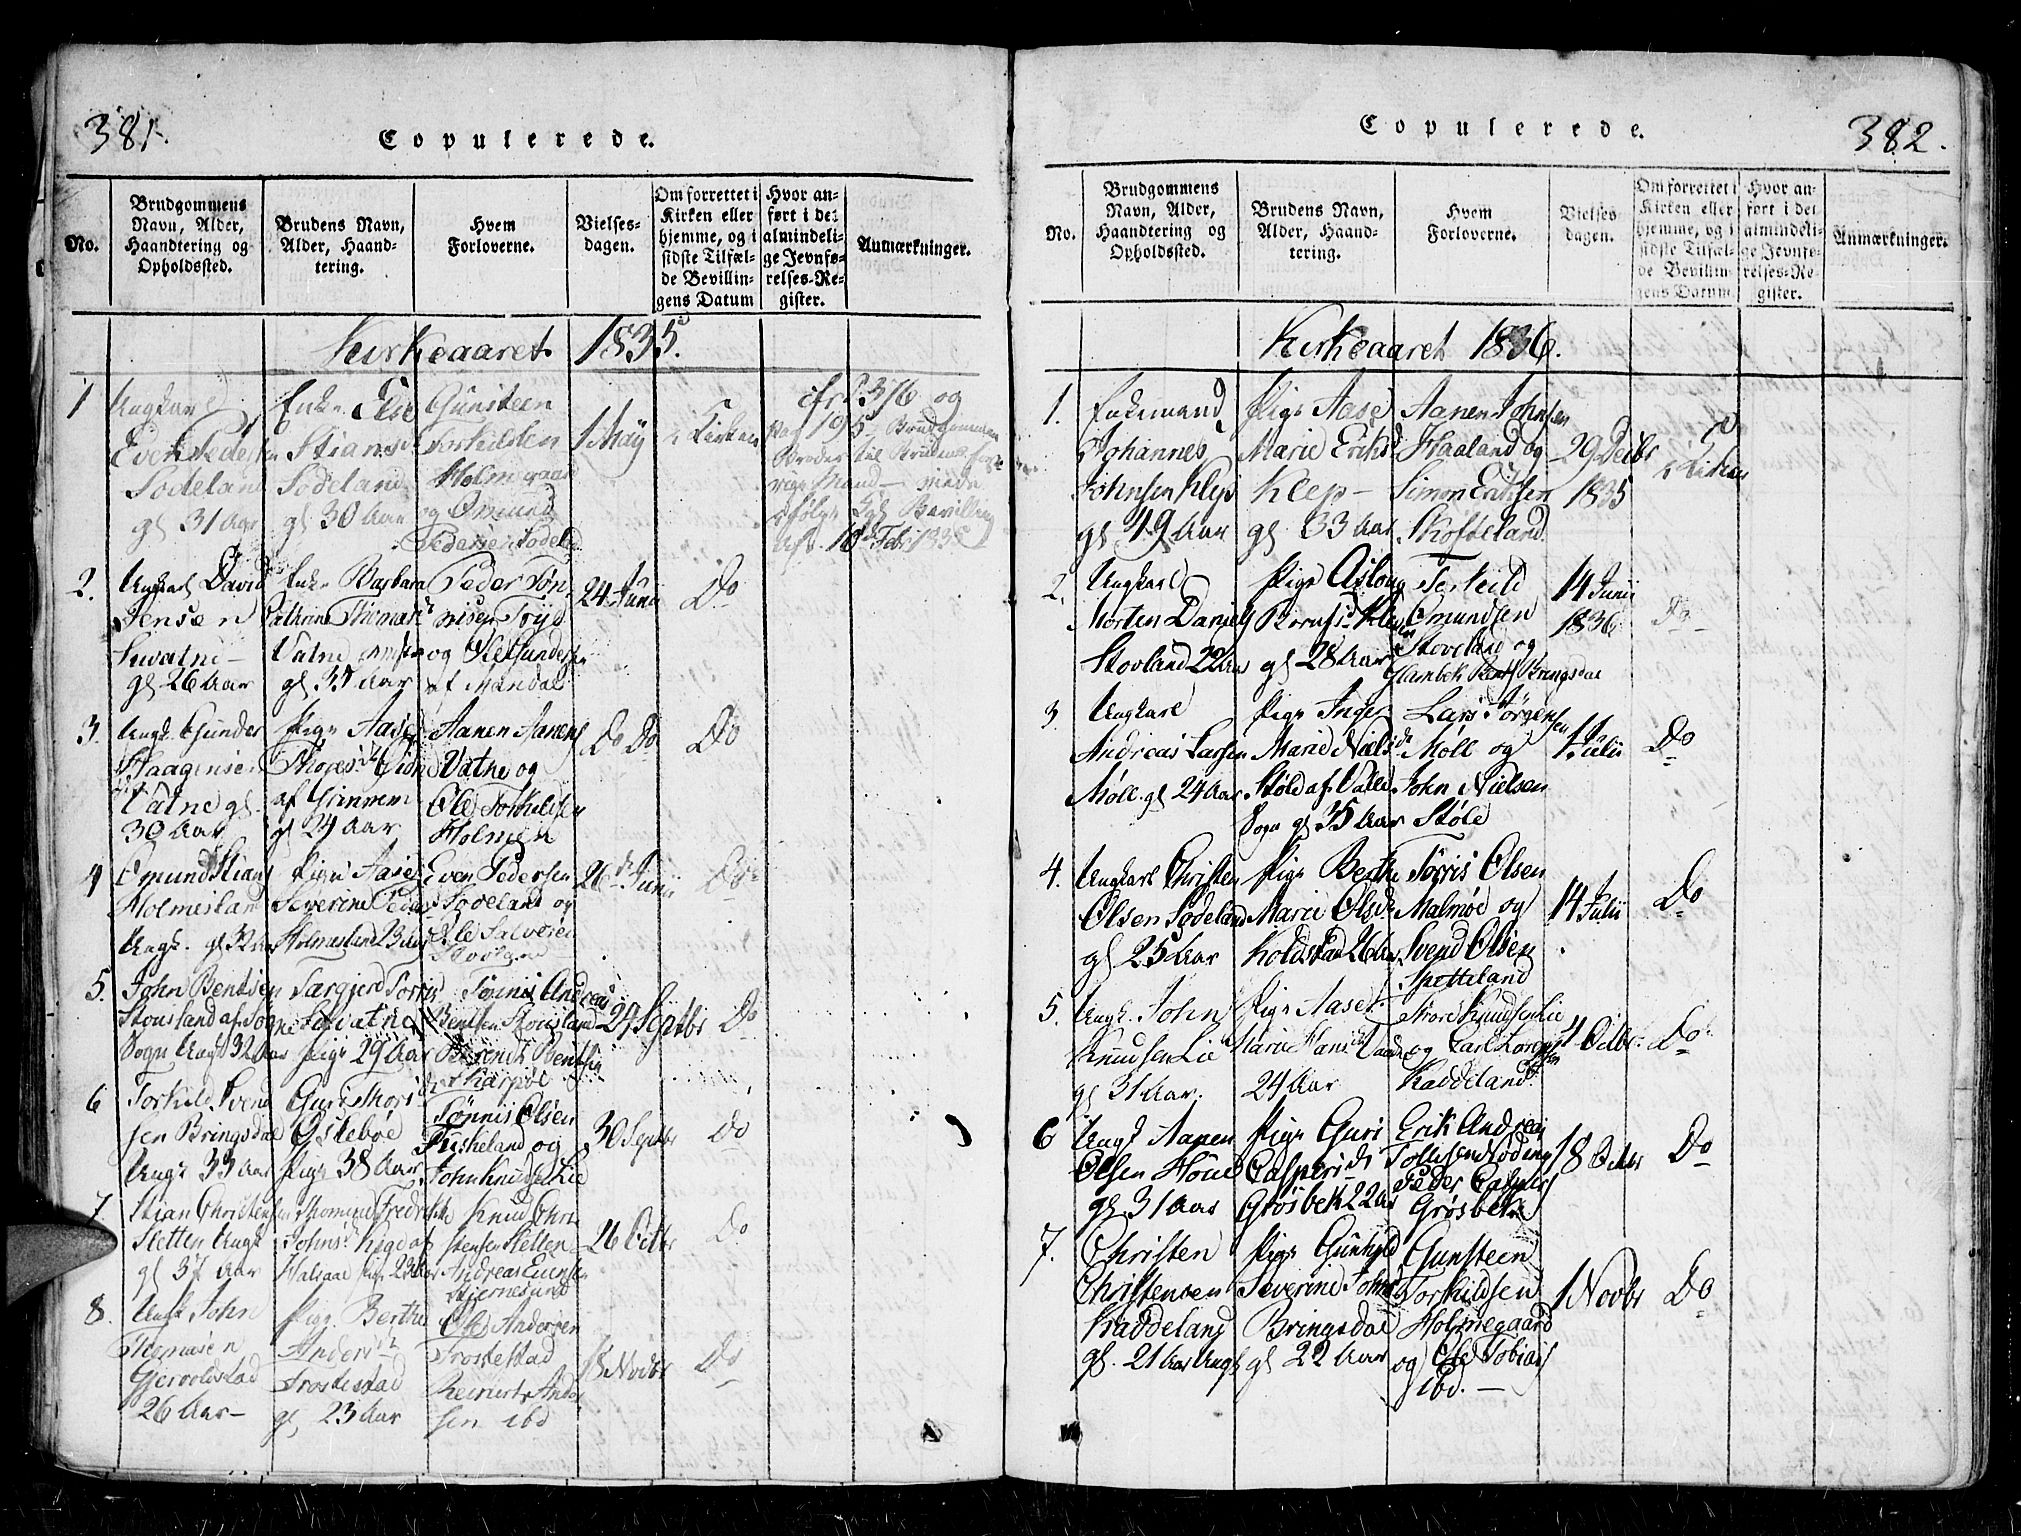 381.
Copulerede.
No.
Brudgommens
Navn, Alder,
Haandtering og
Opholdssted.
Brudens Navn,
Alder, Haand-
tering.
Hvem
Forloverne.
Vielses-
dagen.
Om forrettet i
Kirken eller
hjemme, og i
sidste Tilfæl-
de Bevillin-
gens Datum
Hvor an-
ført i det
almindeli-
ge Jevnfø-
relses-Re-
gister.
Anmærkninger.
Kirkeaaret 1835.
1
Ungkarl
Even Peders
Sodeland
gl 31 Aar
Enke Else
Stiansd
Sodeland
gl 30 Aar
Gunsteen
Torkildsen
Holmgaard
og Omund
Pedersen Sodeld
1 May
i Kirken
cfr P. 376 og
Pag 195 - Brudgommen
Broder til Brudens for
rige Mand -
ifølge Kgl Bevilling
2.
Ungkarl David
Jensen
gl 26 Aar
Enke Barbara
Cathrine Thomasd
Vatne
gl 35 Aar
Peder Tøn
nisen Tryd
og
af Mandal
24 Junii
Do
3.
Ungk. Gunder
Haagensen
Vatne gl.
30 Aar
Pige Aase
Thoresd
af Grimnem
gl 24 Aar
Aanen Aanens
Vatne og
Ole Torkildsen
Holmen
Do Do
Do
4
Omund Stians
Holmesland
Ungk. gl 32 Aar
Pige Aase
Severine Peders
Even Pedersen
Sodeland og
Ole Salvesen
26 Junii
Do
5.
John Bentsen
Stousland af Sogne
Sogn Ungk 32 Aar
Pige 29 Aar
Tønnis Andreas
Bentsen Stousland
Berendt Bentsen
29 Septbr
Do
6
Torkild Svend
sen Bringsdal
Ungk 33 Aar
Guri Thorsd
Østebøe
Pige 38 Aar
Tønnis Olsen
Fuskeland og
John Knudsen Lie
30 Septbr
Do
7
Stian Christensen
Sletten Ungk
gl 37 Aar
Johnsd
Pige 23 Aar
Knud Chri
stensen Sletten
Andreas Evensen
Stiernesund
26 Octbr
Do
8.
Ungk John
Thomasen
Gjervoldstad
26 Aar -
Pige Berthe
Andersd
Trostestad
gl 23 Aar
Ole Andersen
Trostestad
Reinert Ander
sen ibd
18 Novbr
Do
382.
Copulerede.
No.
Brudgommens
Navn, Alder,
Haandtering og
Opholdssted.
Brudens Navn,
Alder, Haand-
tering.
Hvem
Forloverne.
Vielses
dagen.
Om forrettet i
Kirken eller
hjemme, og i
sidste Tilfæl-
de Bevillin-
gens Datum.
Hvor an-
ført i det
almindeli-
ge Jevnfø-
relses-Re-
gister.
Anmærkninger.
Kirkeaaret 1836.
1.
Enkemand
Johannes
Johnsen Klep
gl 49 Aar
Pige Aase
Marie Eriksd
Klep -
gl 33 Aar
Aanen Johnsen
Haaland og
Simon Eriksen
Skofteland.
29 Decbr
1835
i Kirken
2.
Ungkarl
Morten Daniels
Stovland 22 Aar
Pige Asloug
Kleven
gl 28 Aar
Terkeld
Omundsen
Stoveland og
Glambek Bents Bringsdal
14 Junii
1836
Do
3
Ungkarl
Andreas Larsen
Møll gl 24 Aar
Pige Inger
Marie Nielsd
Støld af Valle
Sogn gl 35 Aar
Lars Jørgensen
Moll og
John Nielsen
Støle
11 Julii
Do
4.
Ungkarl Christen
Olsen Sodeland
gl 25 Aar
Pige Berthe
Marie Olsd
Koldstad 26 Aar
Torris Olsen
Malmøe og
Svend Olsen
Spetteland
14 Julii
Do
5.
Ungk. John
Knudsen Lie
gl 31 Aar.
Pige Aase
Marie Hansd
24 Aar
Tore Knudsen Lie
og Carl Lorentsen
Kaddeland
Octbr.
Do
6
Ungk Aanen
Olsen Houe
gl 31 Aar
Pige Guri
Caspersd
Grøsbek 22 Aar
Erik Andreas
Tollefsen Noding
Peder Caspers
Grøsbek
18 Octbr
Do
7.
Christen
Christensen
Kaddeland
gl. 21 Aar Ungk
Pige Gunhyld
Severine Johns
Bringsdal
gl 22 Aar
Gunsteen
Torkildsen
Holmegaard
og Ole Tobias
ibd. -
1 Novbr
Do